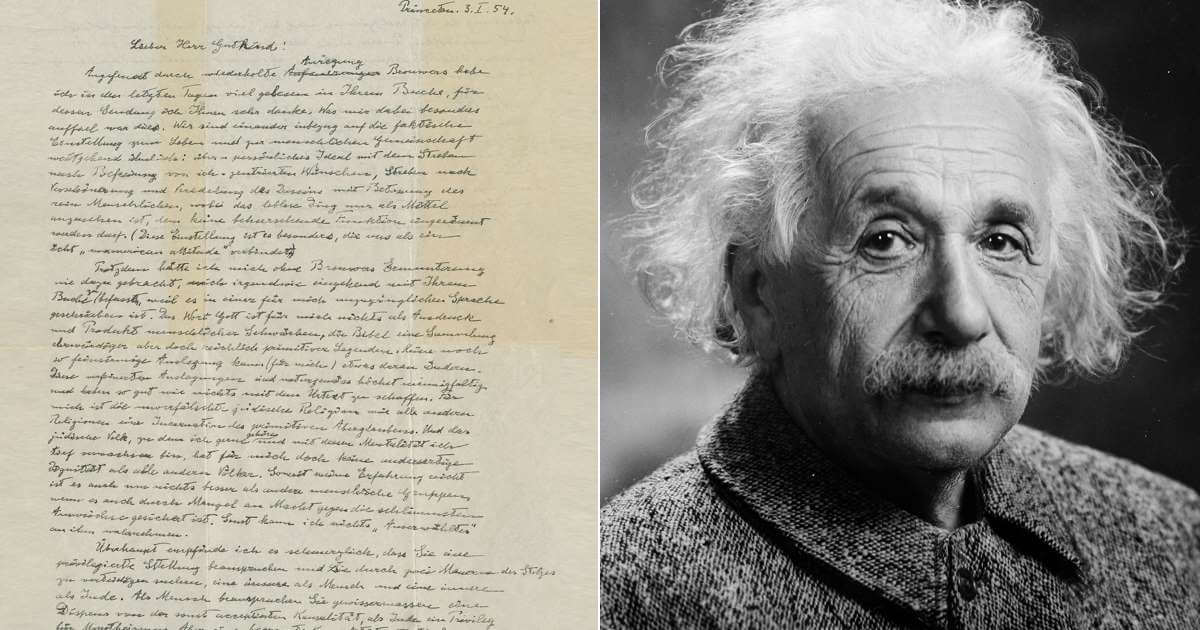 Princeton. 3. I. 54.
Lieber Herr Gutkind!
Anregung
Angefeuert durch wiederholte Brouwers habe
ich in den letzten Tagen viel gelesen in Ihrem Buche, für
dessen Sendung ich Ihnen sehr danke. Was mir dabei besonders
auffiel war dies. Wir sind einander inbezug auf die faktische
Einstellung zum Leben und zur menschlichen Gemeinschaft
weitgehend ähnlich: über-persönliches Ideal mit dem Streben
nach Befreiung von ich-zentrierten Wünschen, Streben nach
Verschönerung und Veredelung des Daseins mit Betonung des
rein Menschlichen, wobei das leblose Ding nur als Mittel
anzusehen ist, dem keine beherrschende Funktion eingeräumt
werden darf. (Diese Einstellung ist es besonders, die uns als ein
echt „unamerican attitude" verbindet)
Trotzdem hätte ich mich ohne Brouwers Ermunterung
nie dazu gebracht, mich irgendwie eingehend mit Ihrem
Buche zu befassen, weil es in einer für mich unzugänglichen Sprache
geschrieben ist. Das Wort Gott ist für mich nichts als Ausdruck
und Produkt menschlicher Schwächen, die Bibel eine Sammlung
ehrwürdiger aber doch reichlich primitiver Legenden. Keine noch
so feinsinnige Auslegung kann (für mich) etwas daran ändern.
Diese verfeinerten Auslegungen sind naturgemäss höchst mannigfaltig
und haben so gut wie nichts mit dem Urtext zu schaffen. Für
mich ist die unverfälschte jüdische Religion wie alle anderen
Religionen eine Incarnation des primitiven Aberglaubens. Und das
gehöre
jüdische Volk, zu dem ich gerne und mit dessen Mentalität ich
tief verwachsen bin, hat für mich doch keine andersartige
Dignität als alle anderen Völker. Soweit meine Erfahrung reicht
ist es auch um nichts besser als andere menschliche Gruppen,
wenn es auch durch Mangel an Macht gegen die schlimmsten
Auswüchse gesichert ist. Sonst kann ich nichts „Auserwähltes"
an ihm wahrnehmen.
Überhaupt empfinde ich es schmerzlich, dass Sie eine
privilegierte Stellung beanspruchen und sie durch zwei Mauern des Stolzes
zu verteidigen suchen, eine äussere als Mensch und eine innere
als Jude. Als Mensch beanspruchen Sie gewissermassen einen
Dispens von der sonst acceptierten Kausalität, als Jude ein Privileg
für Monotheismus.